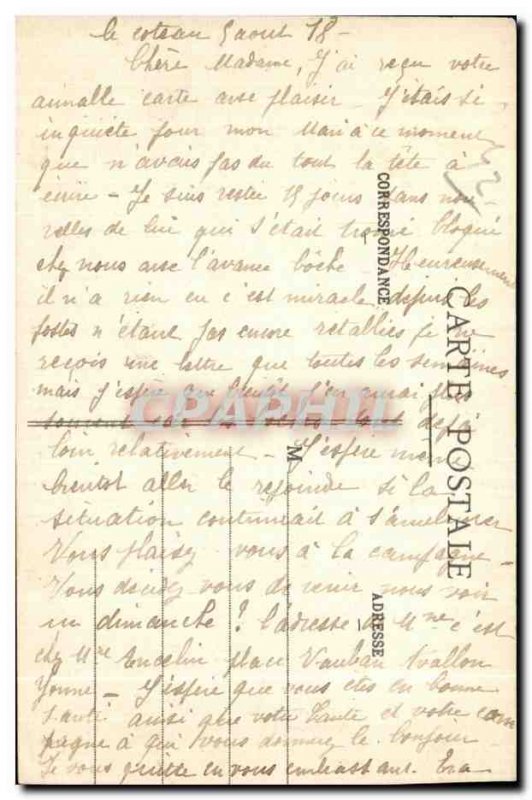 le coteau 5 aout 18 -
Chère Madame, J'ai reçu votre
aimable carte avec plaisir. J'étais si
inquiète pour mon Mari à ce moment
que n'avais pas du tout la tête à
écrire - Je suis restée 15 jours sans nou
velles de lui qui s'était trouvé bloqué
chez nous avec l'avance boche - Heureusement
il n'a rien eu c'est miracle, depuis les
postes n'étant pas encore retablies je ne
reçois une lettre que toutes les semaines
mais j'espère que bientôt j'en aurai plus
souvent les boches sont déjà
loin relativement - J'espère même
bientot aller le rejoindre si la
situation continuait à s'améliorer
Vous plaisez vous à la campagne -
Vous décidez vous de venir nous voir
un dimanche? l'adresse de Mme c'est
chez Mme place Vauban Avallon
Yonne - J'espère que vous êtes en bonne
santé ainsi que votre tante et votre com
pagne à qui vous donnerez le bonjour
Je vous quitte en vous embrassant.
CARTE POSTALE
CORRESPONDANCE
ADRESSE
M
CPAPHIL